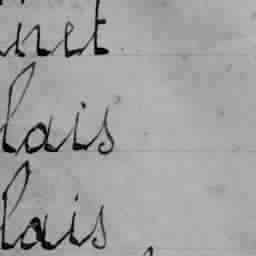 inet
lais
lais